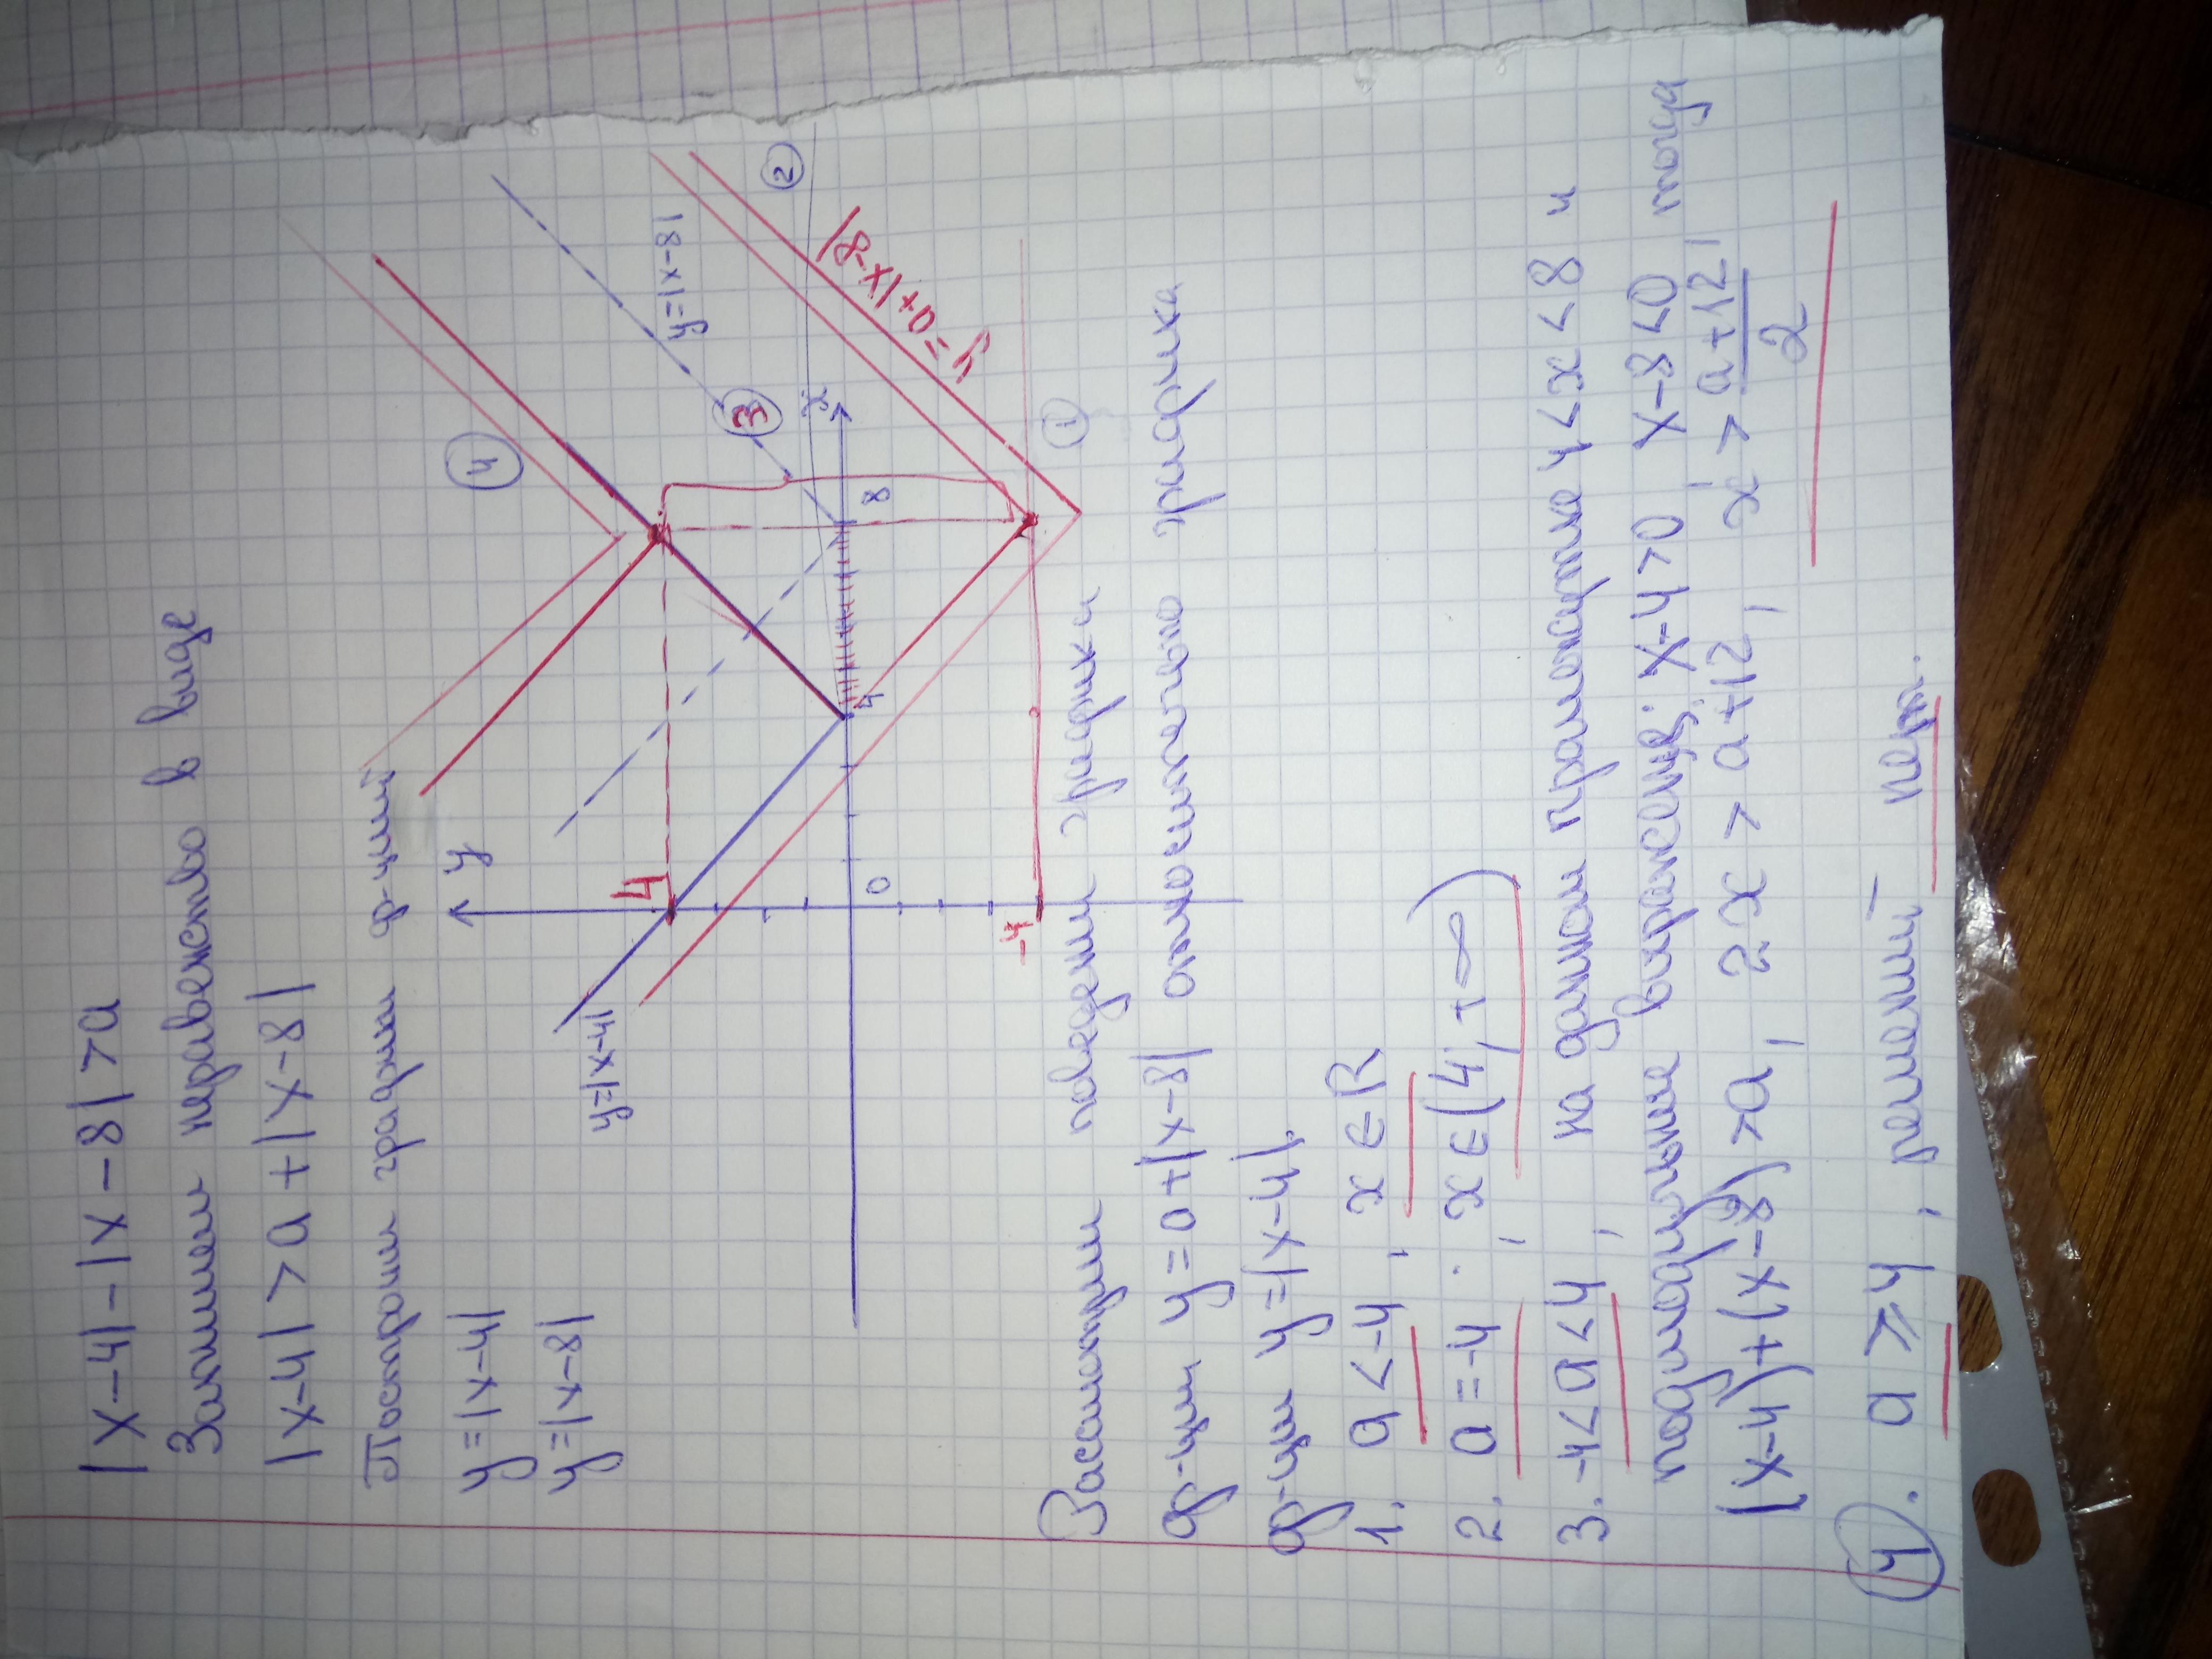 |x-4|-|x-8|>a
Запишем неравенство в виде
|x-4|>a+|x-8|
Построим графики ф-ций
y=|x-4|
y=|x-8|
y
4
y=|x-4|
0
-4
4
8
x
y=|x-8|
y=a+|x-8|
1
2
3
4
Рассмотрим поведение графика
ф-ции y=a+|x-8| относительно графика
ф-ции y=|x-4|.
1. a<-4, x∈R
2. a=-4, x∈(4;+∞)
3. -4<a<4, на данном промежутке 4<x<8 и
подмодульные выражения: x-4>0 x-8<0 тогда
(x-4)+(x-8)>a, 2x>a+12, x>a+12/2
4. a≥4, решений нет.